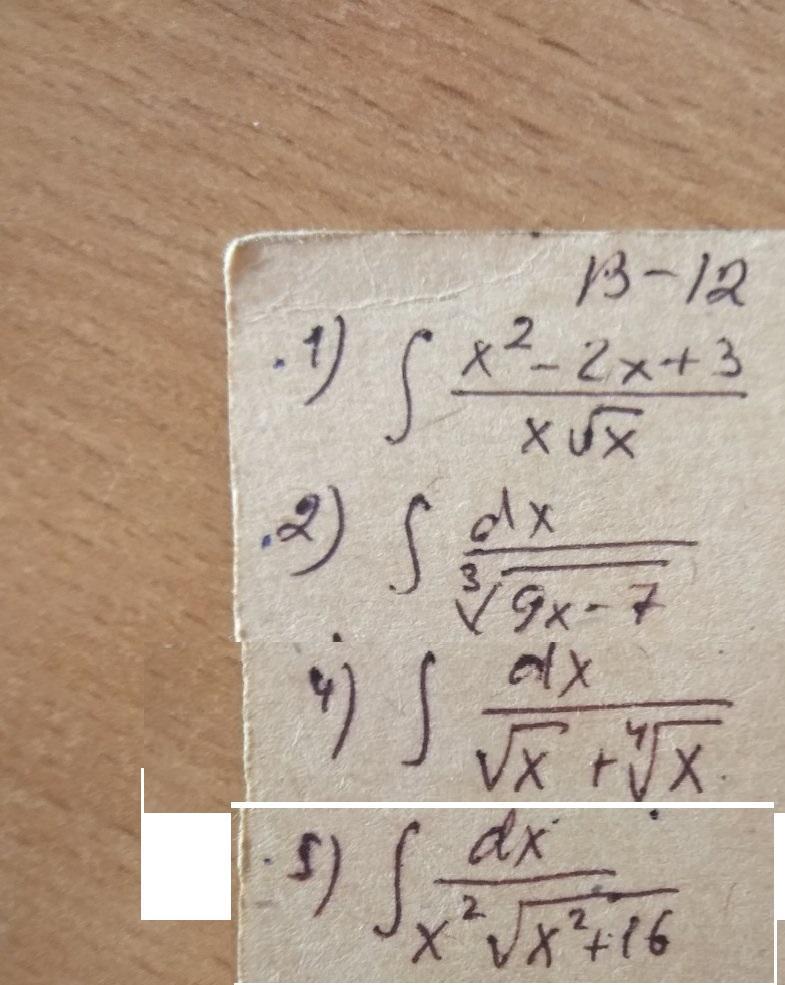 B-12
.1) ∫ (x² - 2x + 3)/(x√x)
.2) ∫ dx/∛(9x - 7)
4) ∫ dx/(√x + ∜x)
.5) ∫ dx/(x²√(x² + 16))